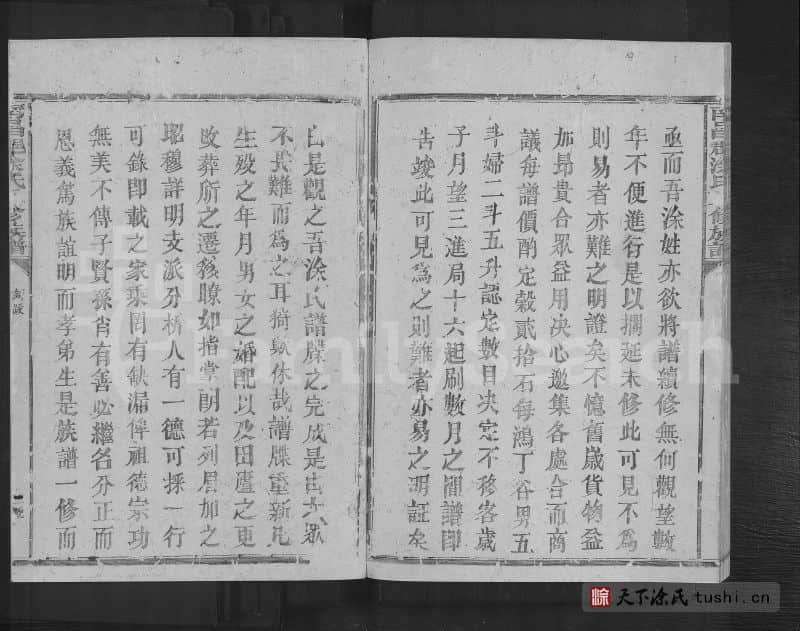 亟而吾涂姓亦欲將譜續修無何觀望數
年不便進行是以擱延未修此可見不爲
則易者亦難之明證矣不憶舊歲貨物益
加昻貴合眾益用决心邀集各處合而商
議每譜價酌定榖貳拾石每鴻丁谷男五
斗婦二斗五升認定數目决定不移客歲
子月望三進局十六起刷數月之間譜即
告竣此可見爲之則難者亦易之明証矣
由是觀之吾涂氏譜牒之完成是由大眾
不畏難而爲之耳猗歟休哉譜牒重新凡
生殁之年月男女之婚配以及田廬之更
改葬所之遷移瞭如指掌朗若列眉加之
昭穆詳明支派分析人有一德可採一行
可錄即載之家乘罔有缺漏俾祖德宗功
無美不傳子賢孫肖有善必繼名分正而
恩義篤族誼明而孝弟生是族譜一修而
涂 天下涂氏 tushi.cn